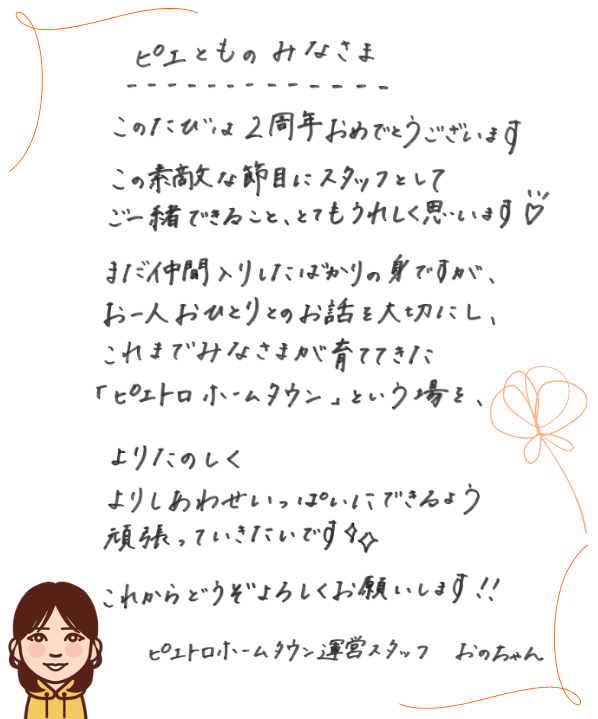 ピエとものみなさま
このたびは2周年おめでとうございます
この素敵な節目にスタッフとして
ご一緒できること、とてもうれしく思います♡
まだ仲間入りしたばかりの身ですが、
お一人おひとりとのお話を大切にし、
これまでみなさまが育ててきた
「ピエトロホームタウン」という場を、
よりたのしく
よりしあわせいっぱいにできるよう
頑張っていきたいです✨
これからどうぞよろしくお願いします!!
ピエトロホームタウン運営スタッフ おのちゃん